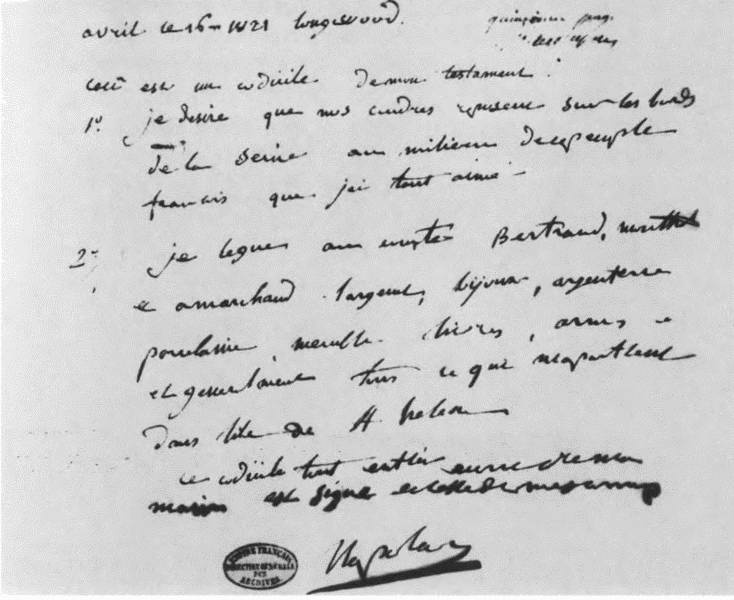 avril le 16 1821 longwood.
ceci est un codicile de mon testament.
1° je desire que mes cendres reposent sur les bords
de la seine au milieu de ce peuple
francais que j'ai tant aimé
2° je legue au comte Bertrand, montholon
et a marchand l'argent, bijoux, argenterie
porcelaine, meuble livres, armes e
et generalement tous ce qui m'apartient
dans l'ile de St helene
ce codicile tout entier ecrit de ma
main est signé et de mes armes
Napoleon
EMPIRE FRANÇAIS
DIRECTION GENERALE
DES
ARCHIVES